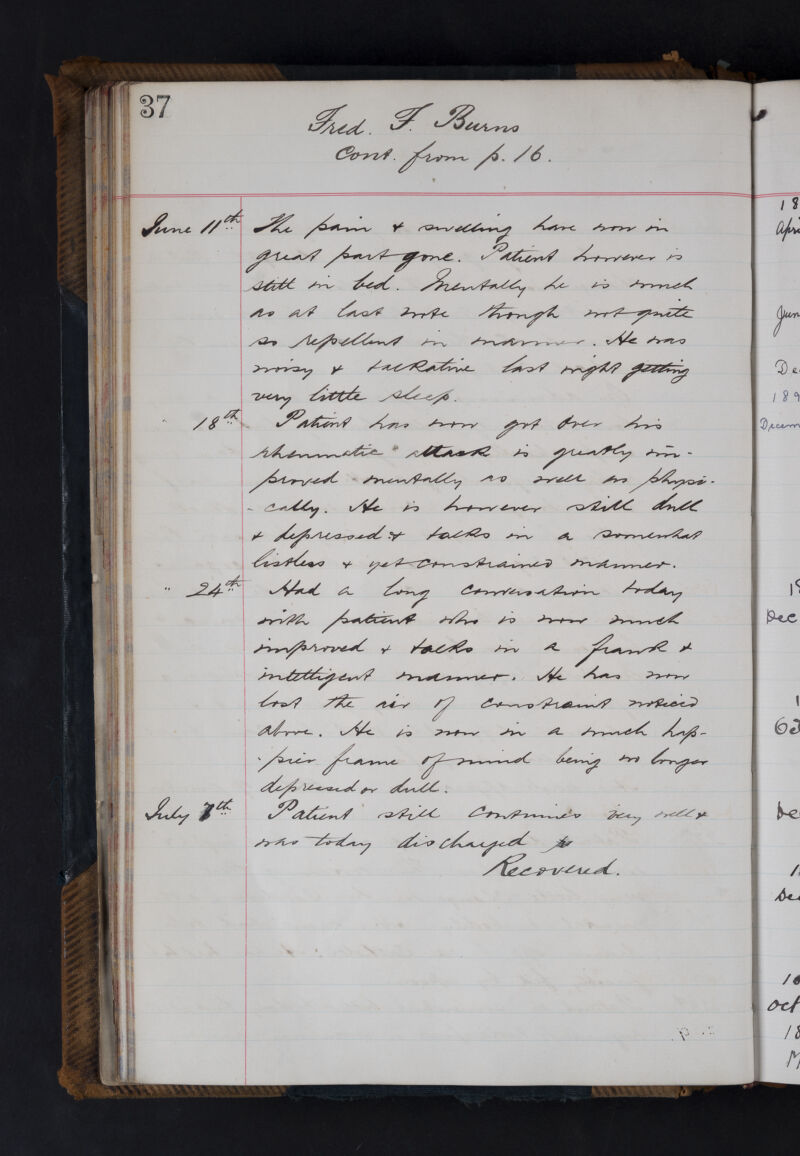 37
Fred. F. Burns
Cont. from p. 16.
June 11th The pain & swelling have now in
great part gone. Patient however is
still in bed. Mentally he is much
as at last note though not quite
so repellent in manner. He was
noisy & talkative last night getting
very little sleep.
" 18th Patient has now got over his
rheumatic attack is greatly im-
proved mentally as well as physi-
-cally. He is however still dull
& depressed & talks in a somewhat
listless & yet constrained manner.
" 24th Had a long conversation today
with patient who is now much
improved & talks in a frank &
intelligent manner. He has now
lost the air of constraint noticed
above. He is now in a much hap-
-pier frame of mind being no longer
depressed or dull.
July 7th Patient still continues very well &
was today discharged
Recovered.
18
Apri
Jun
De
189
Decem
18
Dec
1
Oct
De
1
Dec
18
Oct
18
M